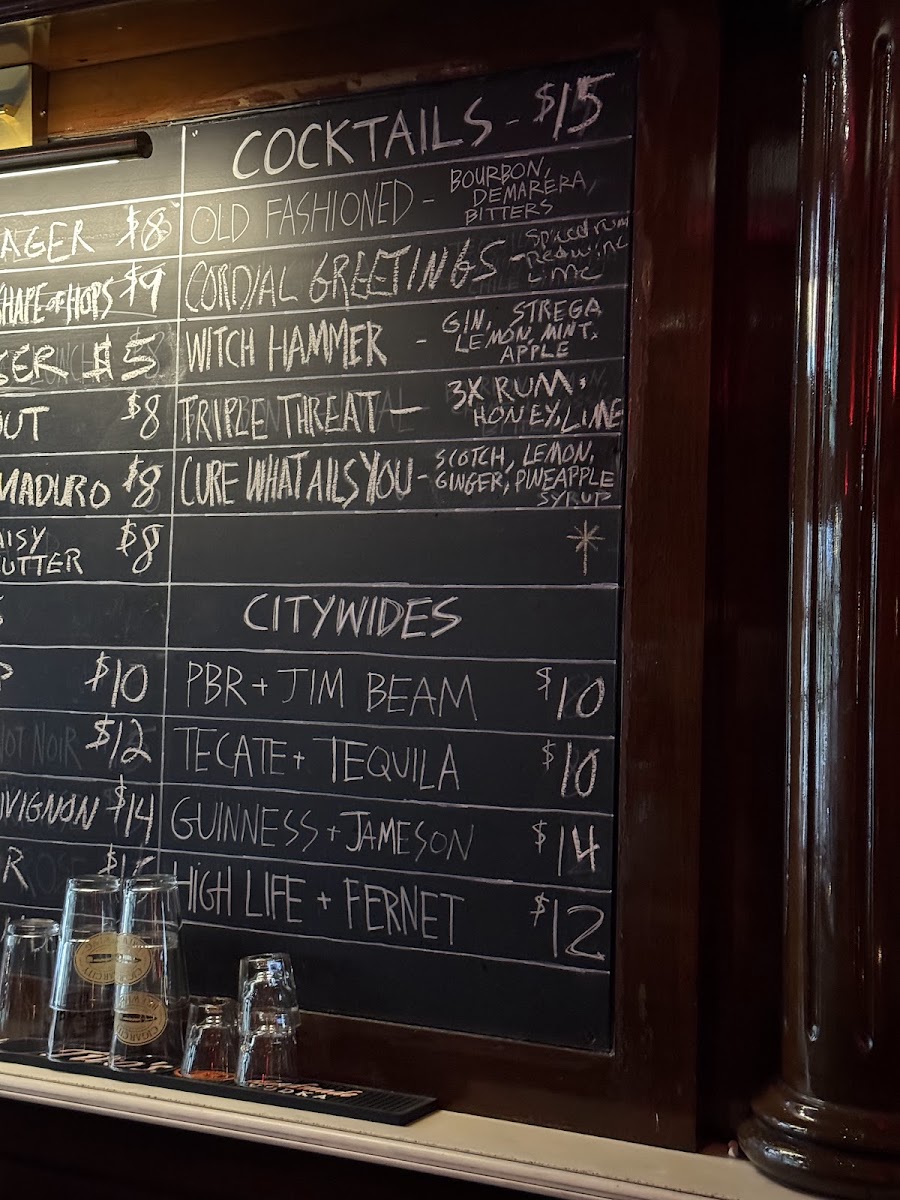 AGER $8
SHAPE OF HOPS $9
GER $5
OUT $8
MADURO $8
AISY
UTTER $8
$10
NOIR $12
UVIGNON $14
R ROSE
COCKTAILS - $15
OLD FASHIONED - BOURBON,
DEMARERA,
BITTERS
CORDIAL GREETINGS - Spiced rum
Red wine
Lime
WITCH HAMMER - GIN, STREGA
LEMON, MINT,
APPLE
TRIPLE THREAT - 3X RUM,
HONEY, LIME
CURE WHAT AILS YOU - SCOTCH, LEMON,
GINGER, PINEAPPLE
SYRUP
*
CITYWIDES
PBR + JIM BEAM $10
TECATE + TEQUILA $10
GUINNESS + JAMESON $14
HIGH LIFE + FERNET $12
CIGAR CITY
VODKA